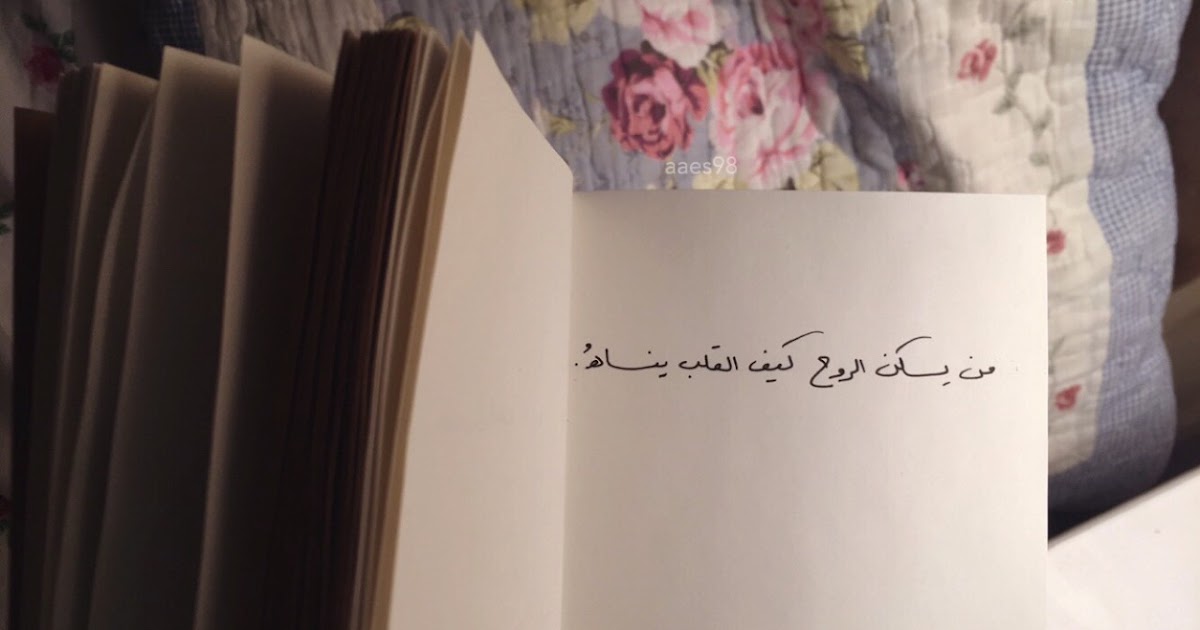 aaes98
من يسكن الروح كيف القلب ينساهُ.